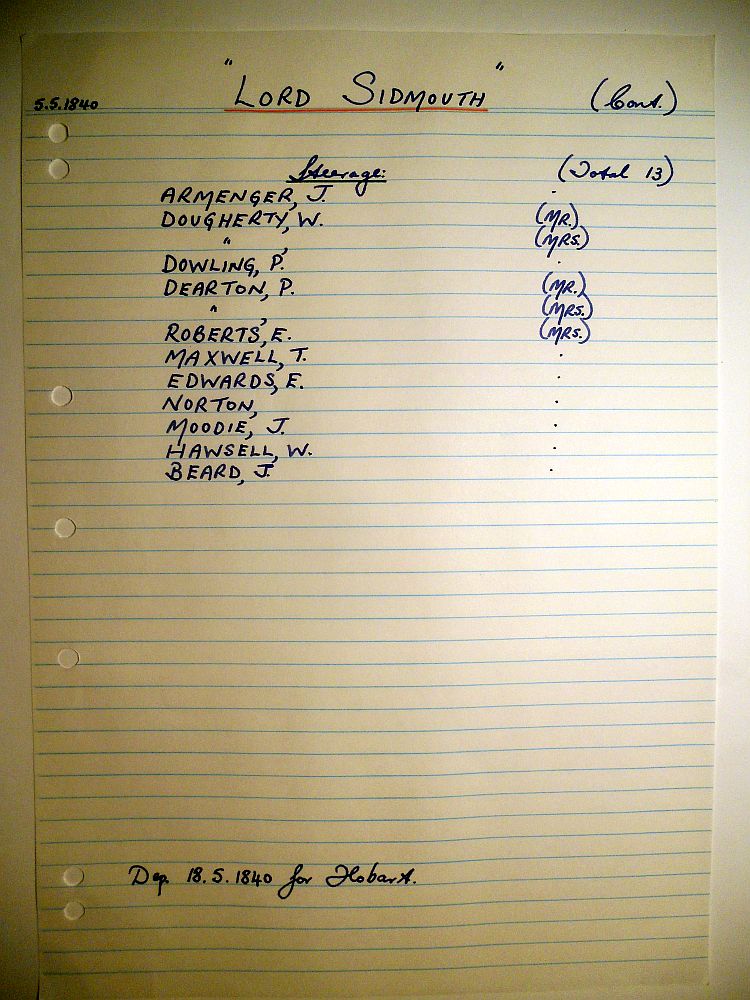 5.5.1840 "LORD SIDMOUTH" (Cont.)
Steerage: (Total 13)
ARMENGER, J. .
DOUGHERTY, W. (MR.)
" , (MRS.)
DOWLING, P. .
DEARTON, P. (MR.)
" , (MRS.)
ROBERTS, E. (MRS.)
MAXWELL, T. .
EDWARDS, E. .
NORTON, .
MOODIE, J. .
HAWSELL, W. .
BEARD, J. .
Dep. 18.5.1840 for Hobart.